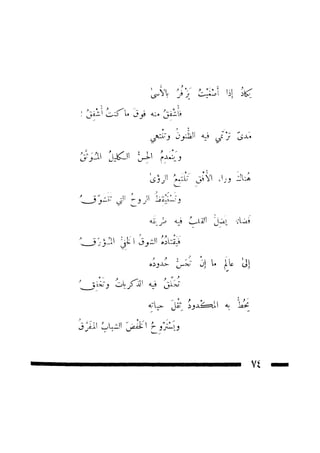 يكادُ إذا أصغيتُ يَزْفرُ بالأسى
فأشفِقُ منه فوقَ ما كنتُ أشفقُ !
مدىً ترتمي فيه الظنونُ وتنتهي
وينعدمُ الحسُّ الكليلُ الموثقُ
هناكَ وراءَ الأفقِ تلتمعُ الرؤى
وتستيقظُ الروحُ التي تتشوقُ
فضاءٌ يضلُّ القلبُ فيه طريقَه
فيقتادُه الشوقُ الخفيُّ المؤرقُ
إلى عالمٍ ما إنْ تُحَسُّ حدودُه
تُحلّقُ فيه الذكرياتُ وتخفقُ
يحطُّ به المكدودُ ثِقْلَ حياتِه
ويَسْتَرْوِحُ الخفضَ الشبابُ المفرَّقُ
٧٤